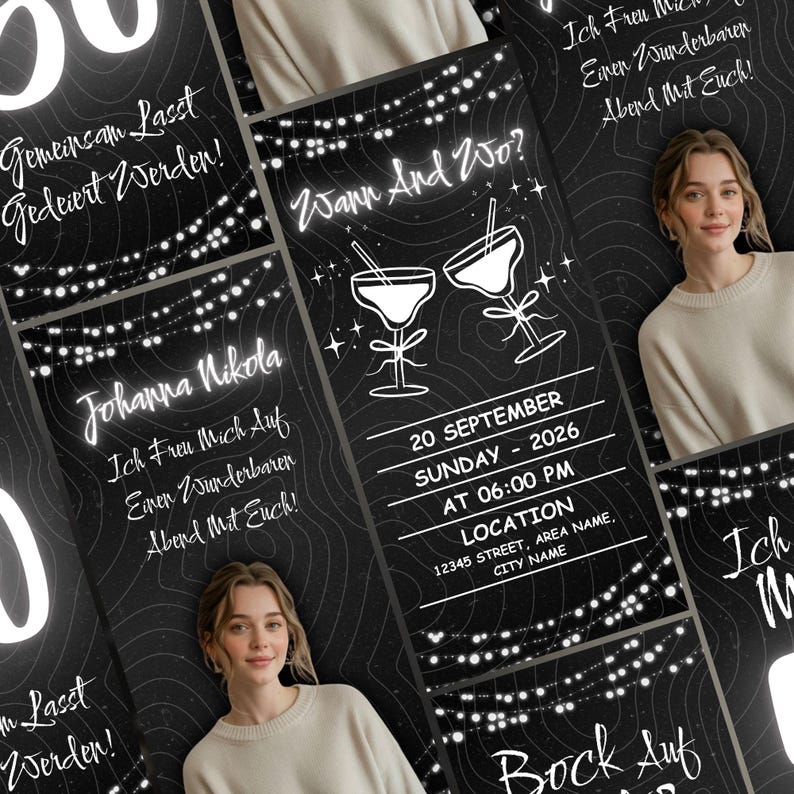 Gemeinsam Lasst
Gedeiert Werden!
Johanna Nikola
Ich Freu Mich Auf
Einen Wunderbaren
Abend Mit Euch!
Wann And Wo?
20 SEPTEMBER
SUNDAY - 2026
AT 06:00 PM
LOCATION
12345 STREET, AREA NAME,
CITY NAME
Ich Freu Mich Auf
Einen Wunderbaren
Abend Mit Euch!
Lasst
Werden!
Ich
Bock Auf